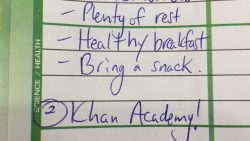 - Plenty of rest
- Healthy breakfast
- Bring a snack.
② Khan Academy!
SCIENCE / HEALTH